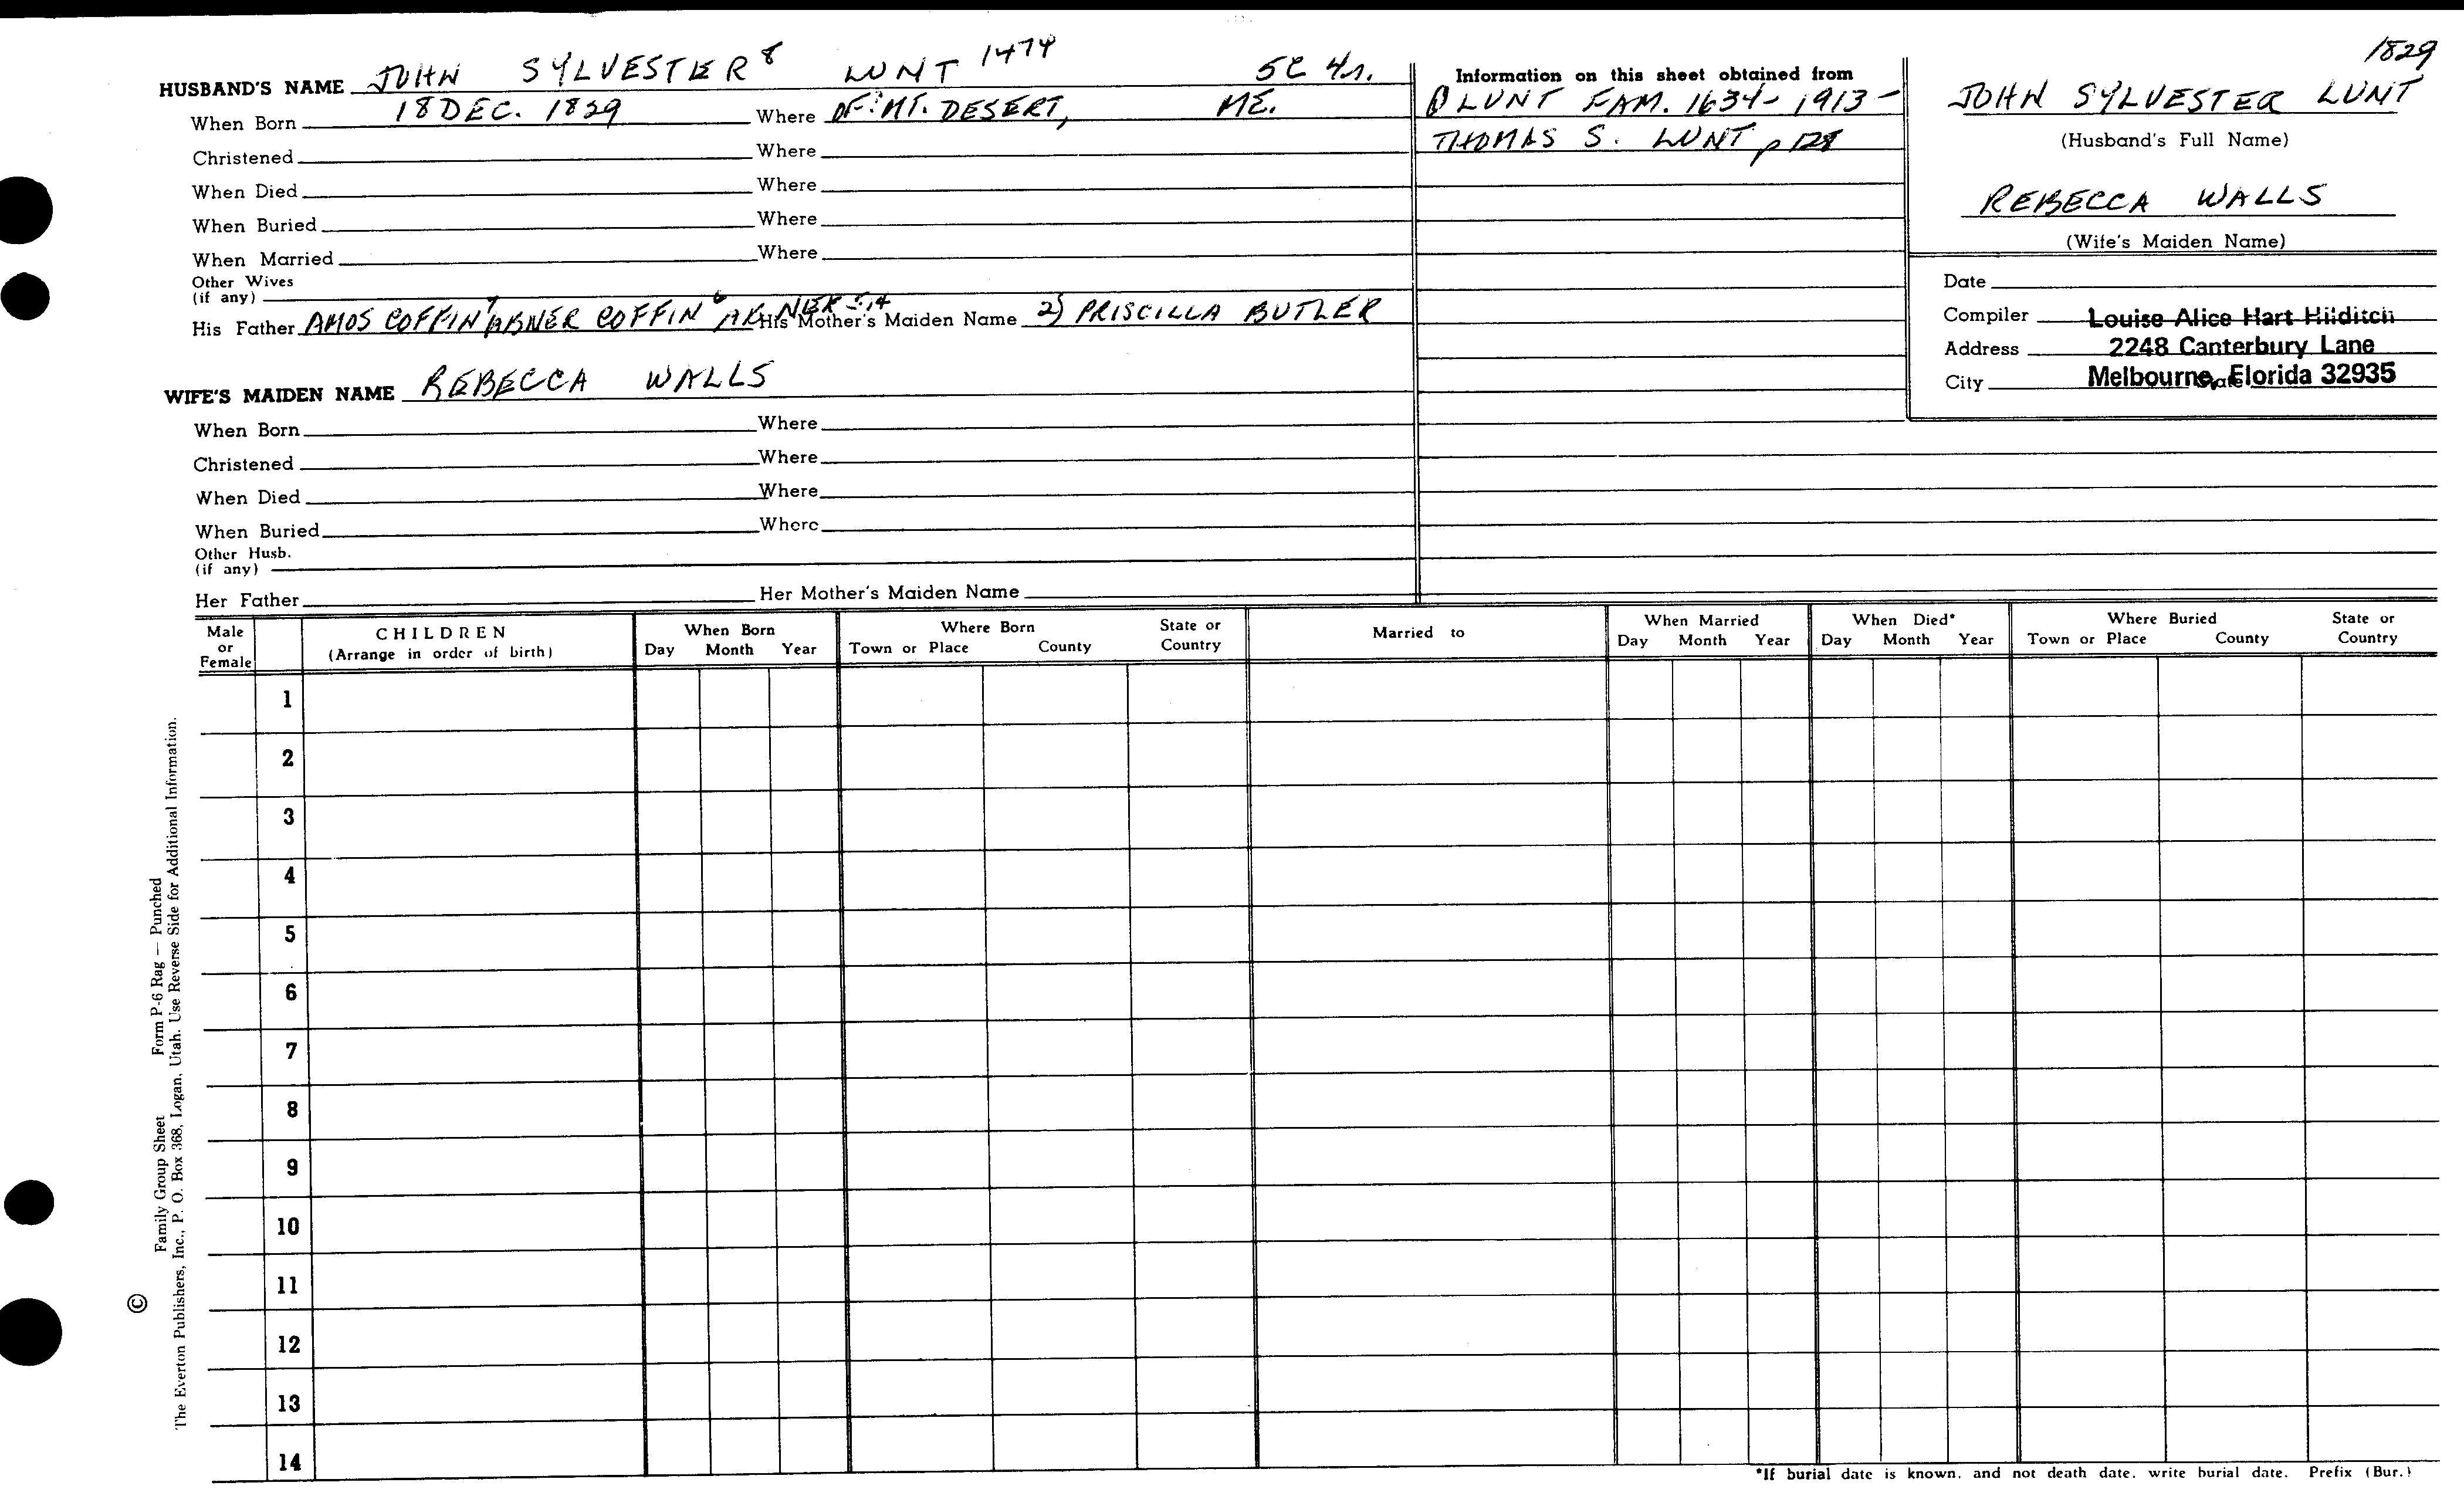 1829
HUSBAND'S NAME JOHN SYLVESTER 8 LUNT 1474 5C 4r.
When Born 18 DEC. 1829 Where OF: MT. DESERT, ME.
Christened Where
When Died Where
When Buried Where
When Married Where
Other Wives
(if any)
His Father AMOS COFFIN 7 ABNER COFFIN 6 ABNER 5,4 His Mother's Maiden Name 2) PRISCILLA BUTLER
WIFE'S MAIDEN NAME REBECCA WALLS
When Born Where
Christened Where
When Died Where
When Buried Where
Other Husb.
(if any)
Her Father Her Mother's Maiden Name
Information on this sheet obtained from
LUNT FAM. 1634-1913-
THOMAS S. LUNT p 128
JOHN SYLVESTER LUNT
(Husband's Full Name)
REBECCA WALLS
(Wife's Maiden Name)
Date
Compiler Louise Alice Hart Hilditch
Address 2248 Canterbury Lane
City Melbourne, Florida 32935
Male or Female
CHILDREN
(Arrange in order of birth)
When Born
Day Month Year
Where Born
Town or Place County State or Country
Married to
When Married
Day Month Year
When Died*
Day Month Year
Where Buried
Town or Place County State or Country
1
2
3
4
5
6
7
8
9
10
11
12
13
14
*If burial date is known, and not death date, write burial date. Prefix (Bur.)
©
Family Group Sheet Form P-6 Rag — Punched
The Everton Publishers, Inc., P. O. Box 368, Logan, Utah. Use Reverse Side for Additional Information.